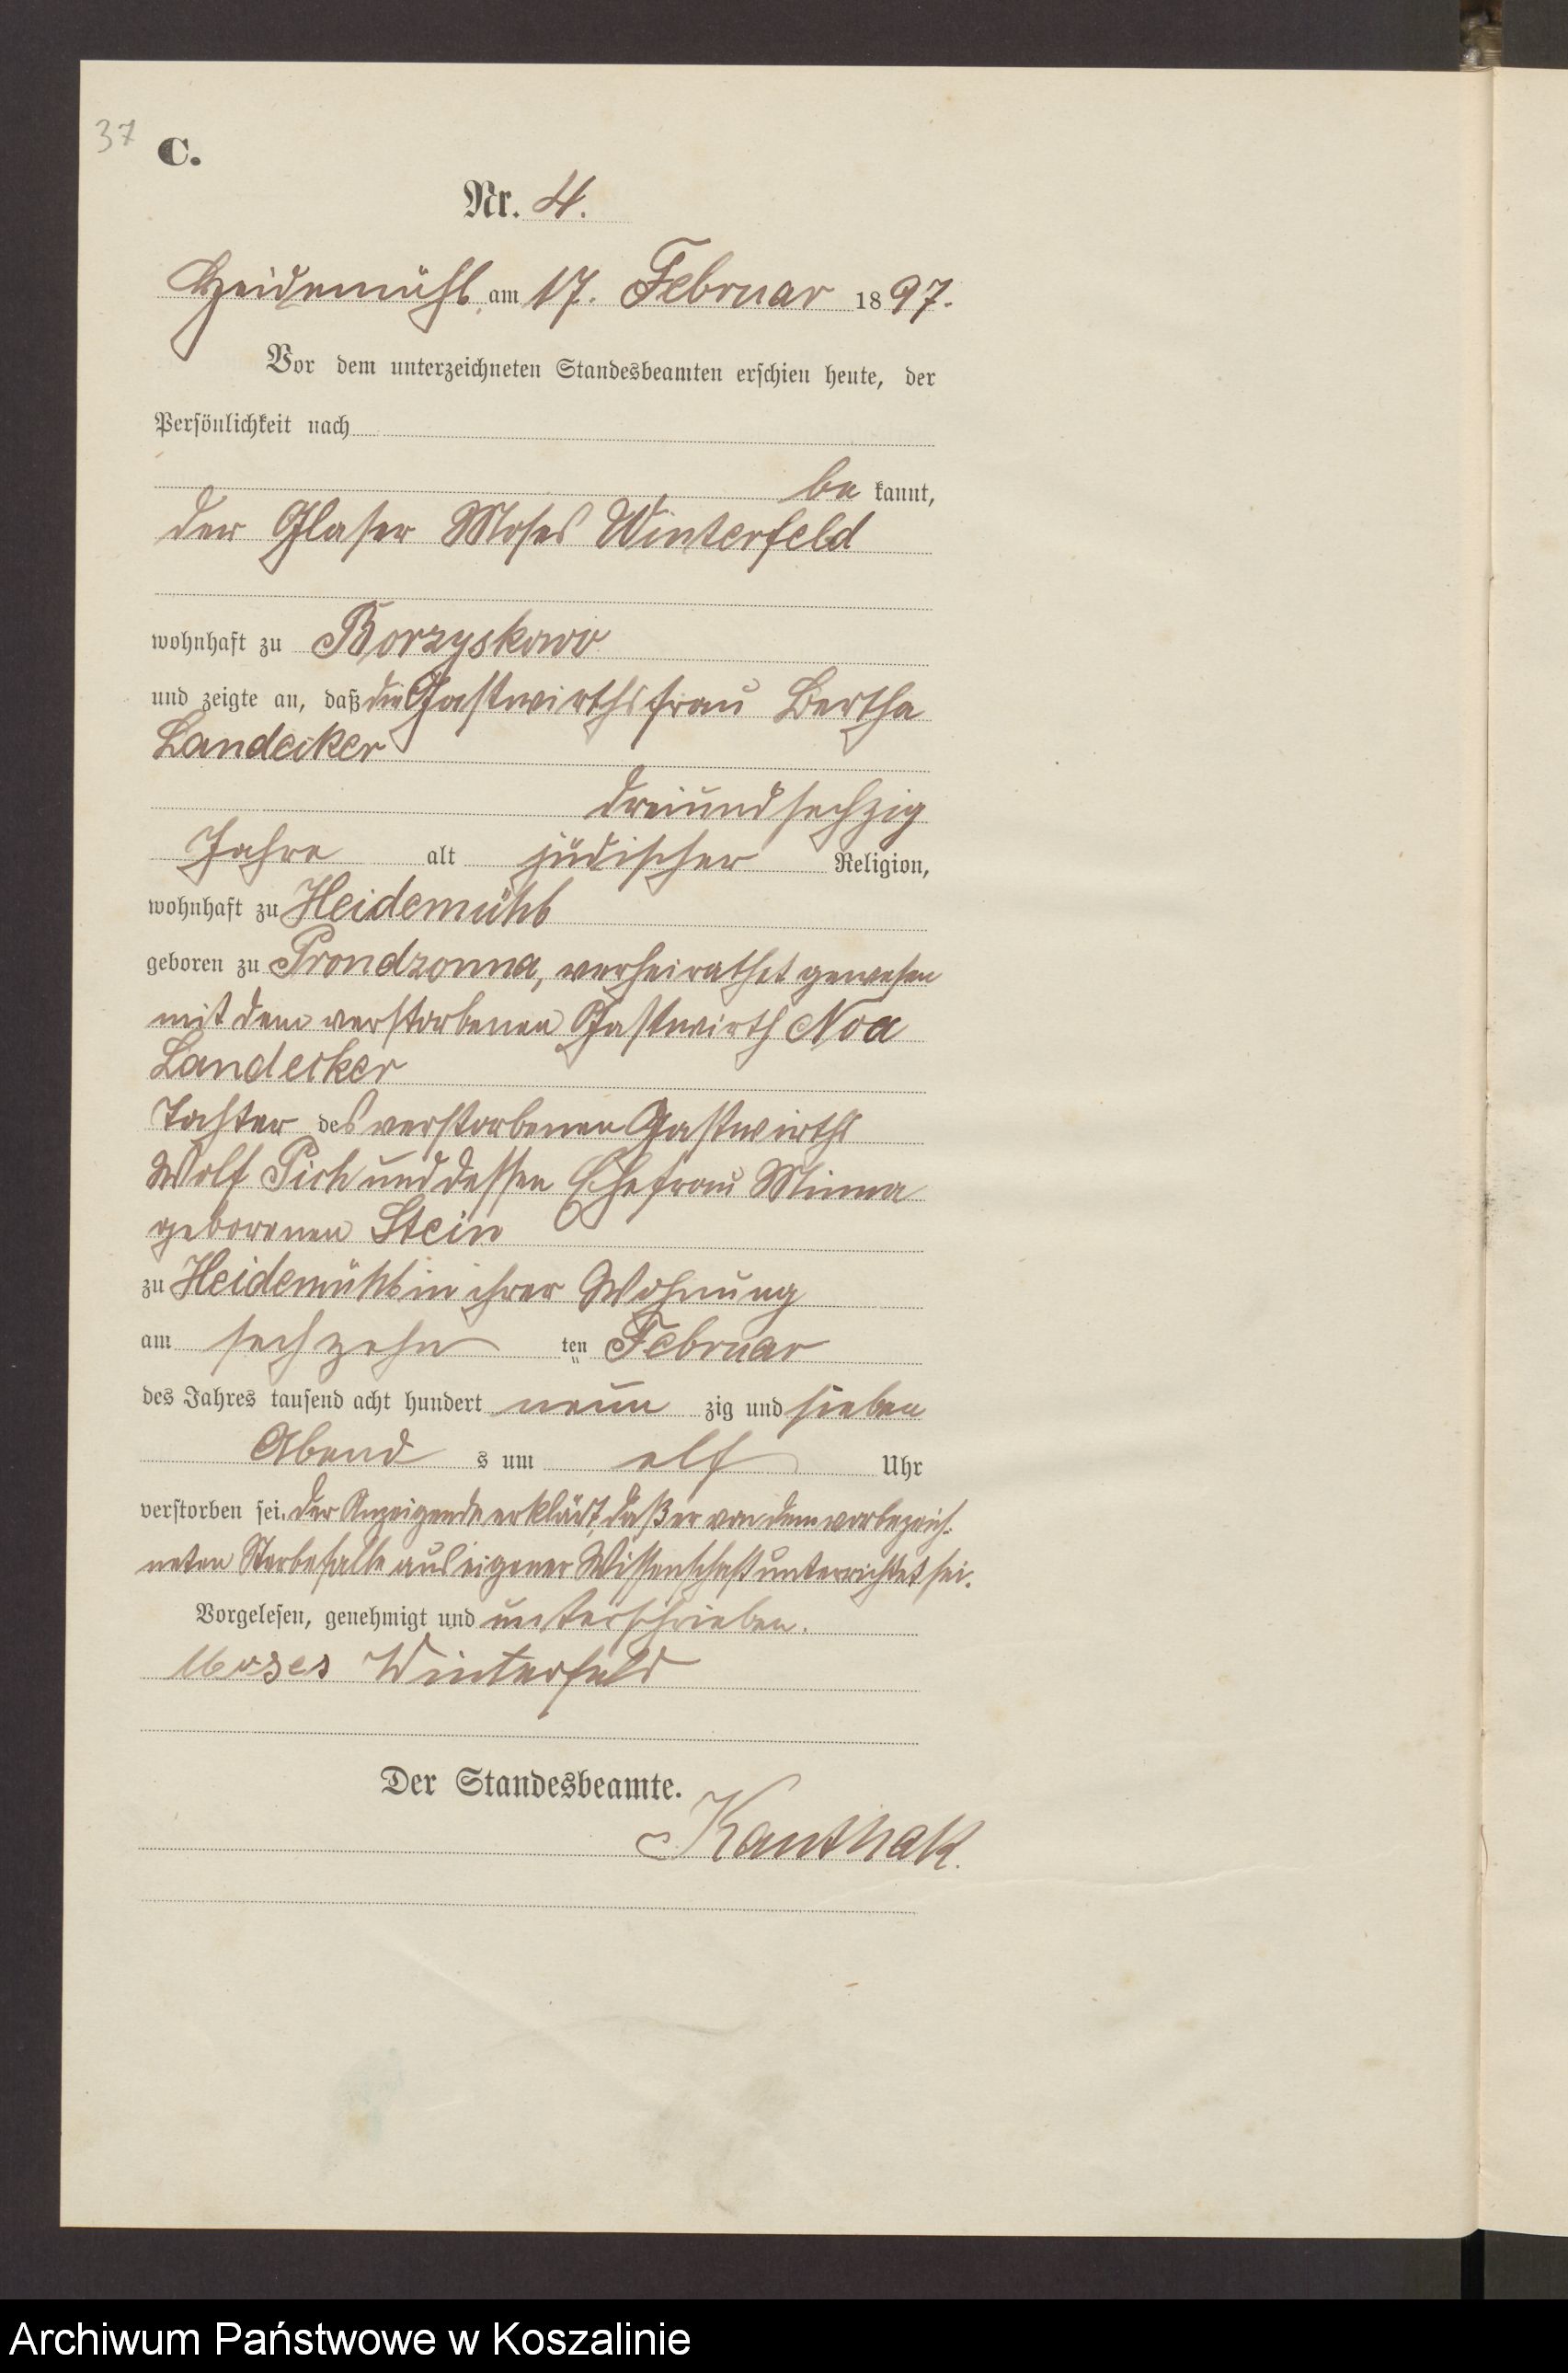 37
C.
Nr. 4.
Heidemühl am 17. Februar 1897.
Vor dem unterzeichneten Standesbeamten erschien heute, der
Persönlichkeit nach
be kannt,
der Glaser Moses Winterfeld
wohnhaft zu Borzyskowo
und zeigte an, daß die Gastwirthsfrau Bertha
Landecker
dreiundsechzig
Jahre alt jüdischer Religion,
wohnhaft zu Heidemühl
geboren zu Prondzonna, verheirathet gewesen
mit dem verstorbenen Gastwirth Noa
Landecker
Tochter des verstorbenen Gastwirths
Wolf Pick und dessen Ehefrau Minna
geborenen Stein
zu Heidemühl in ihrer Wohnung
am sechzehn ten Februar
des Jahres tausend acht hundert neun zig und sieben
Abend s um elf Uhr
verstorben sei. Der Anzeigende erklärt, daß er von dem vorbezeich-
neten Sterbefalle aus eigener Wissenschaft unterrichtet sei.
Vorgelesen, genehmigt und unterschrieben.
Moses Winterfeld
Der Standesbeamte.
Kanthak.
Archiwum Państwowe w Koszalinie